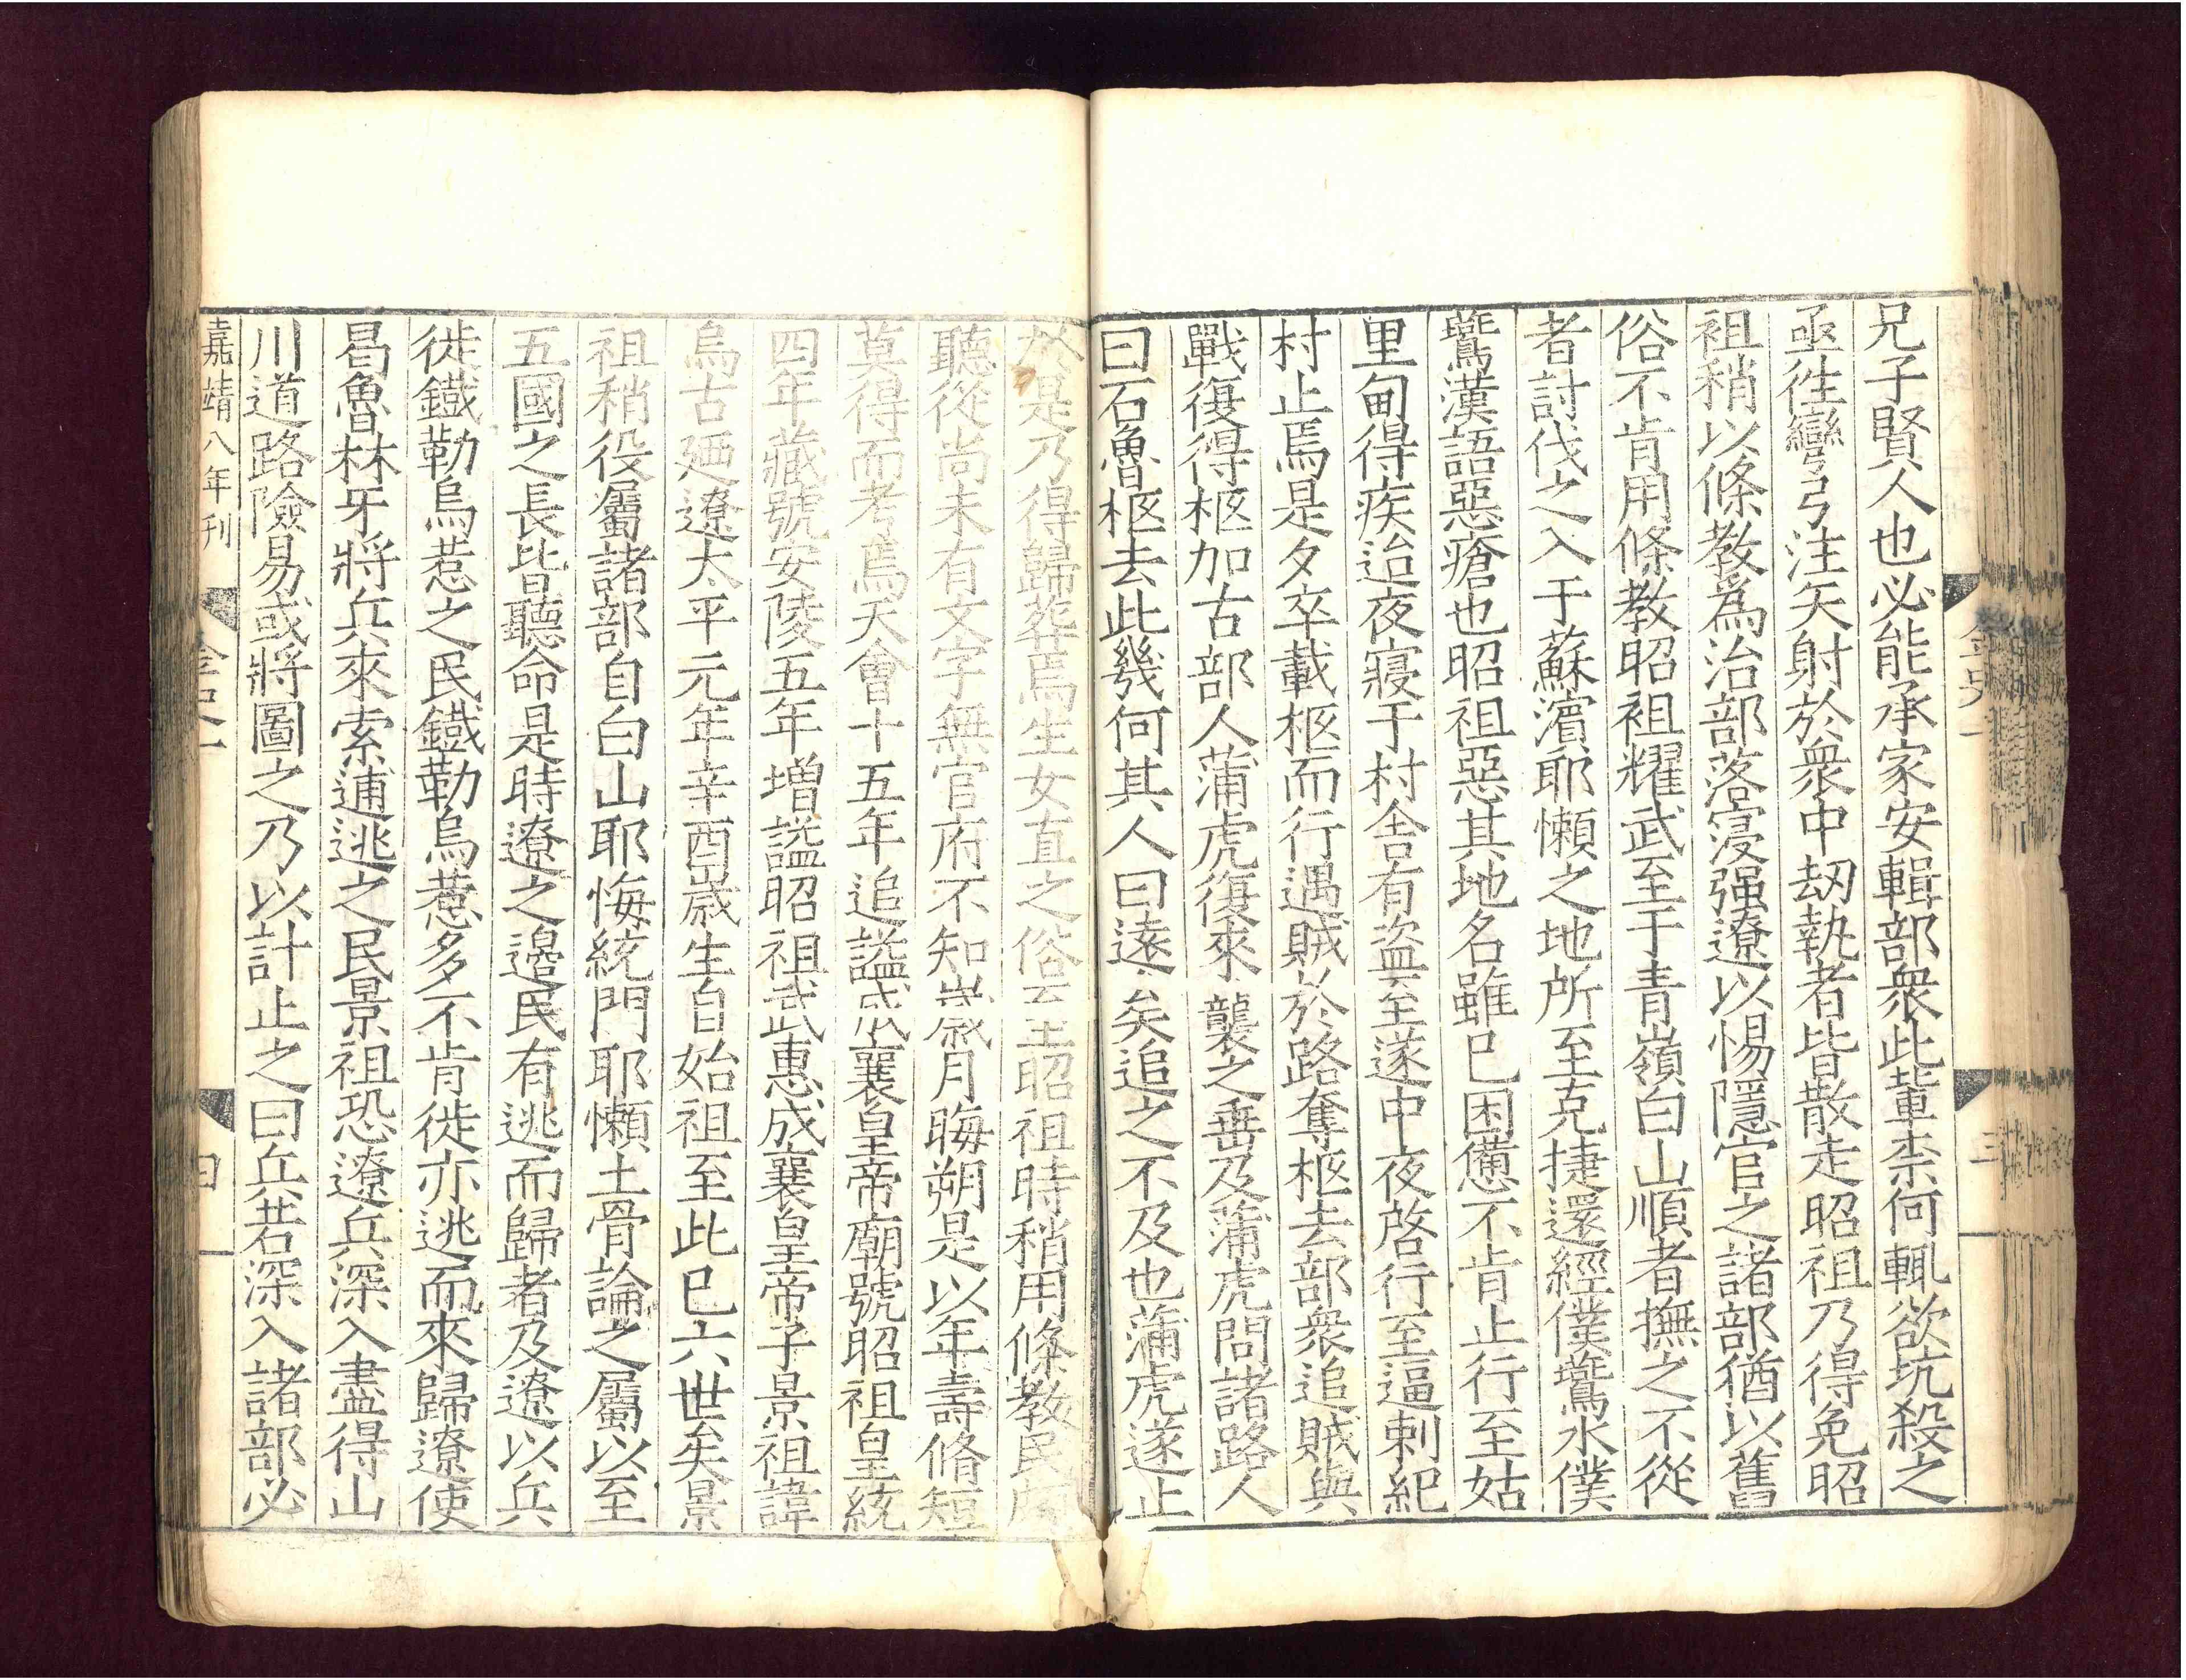 兄子賢人也必能承家安輯部衆此輩柰何輒欲坑殺之
亟徃彎弓注矢射於衆中刼執者皆散走昭祖乃得免昭
祖稍以條教爲治部落寖强遼以惕隱官之諸部猶以舊
俗不肯用條教昭祖耀武至于青嶺白山順者撫之不從
者討伐之入于蘇濵耶懶之地所至克捷還經僕鷰水僕
鷰漢語惡瘡也昭祖惡其地名雖已困憊不肯止行至姑
里甸得疾迨夜寢于村舍有盗至遂中夜啓行至逼剌紀
村止焉是夕卒載柩而行遇賊於路奪柩去部衆追賊與
戰復得柩加古部人蒲虎復來襲之垂及蒲虎問諸路人
曰石魯柩去此幾何其人曰遠矣追之不及也蒲虎遂止
於是乃得歸葬焉生女直之俗至昭祖時稍用條教民
聽從尚未有文字無官府不知歲月晦朔是以年壽脩短
莫得而考焉天會十五年追謚成襄皇帝廟號昭祖皇統
四年藏號安陵五年增謚昭祖武惠成襄皇帝子景祖諱
烏古廼遼太平元年辛酉歲生自始祖至此已六世矣景
祖稍役屬諸部自白山耶悔統門耶懶土骨論之屬以至
五國之長皆聽命是時遼之邊民有逃而歸者及遼以兵
徙鐵勒烏惹之民鐵勒烏惹多不肯徙亦逃而來歸遼使
曷魯林牙將兵來索逋逃之民景祖恐遼兵深入盡得山
川道路險易或將圖之乃以計止之曰兵若深入諸部必
嘉靖八年刊 金史一 四